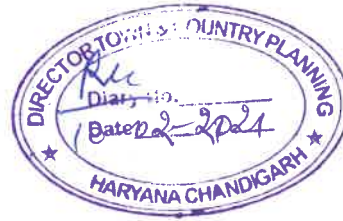 DIRECTOR TOWN & COUNTRY PLANNING
Diary No.
Date 02-2021
HARYANA CHANDIGARH